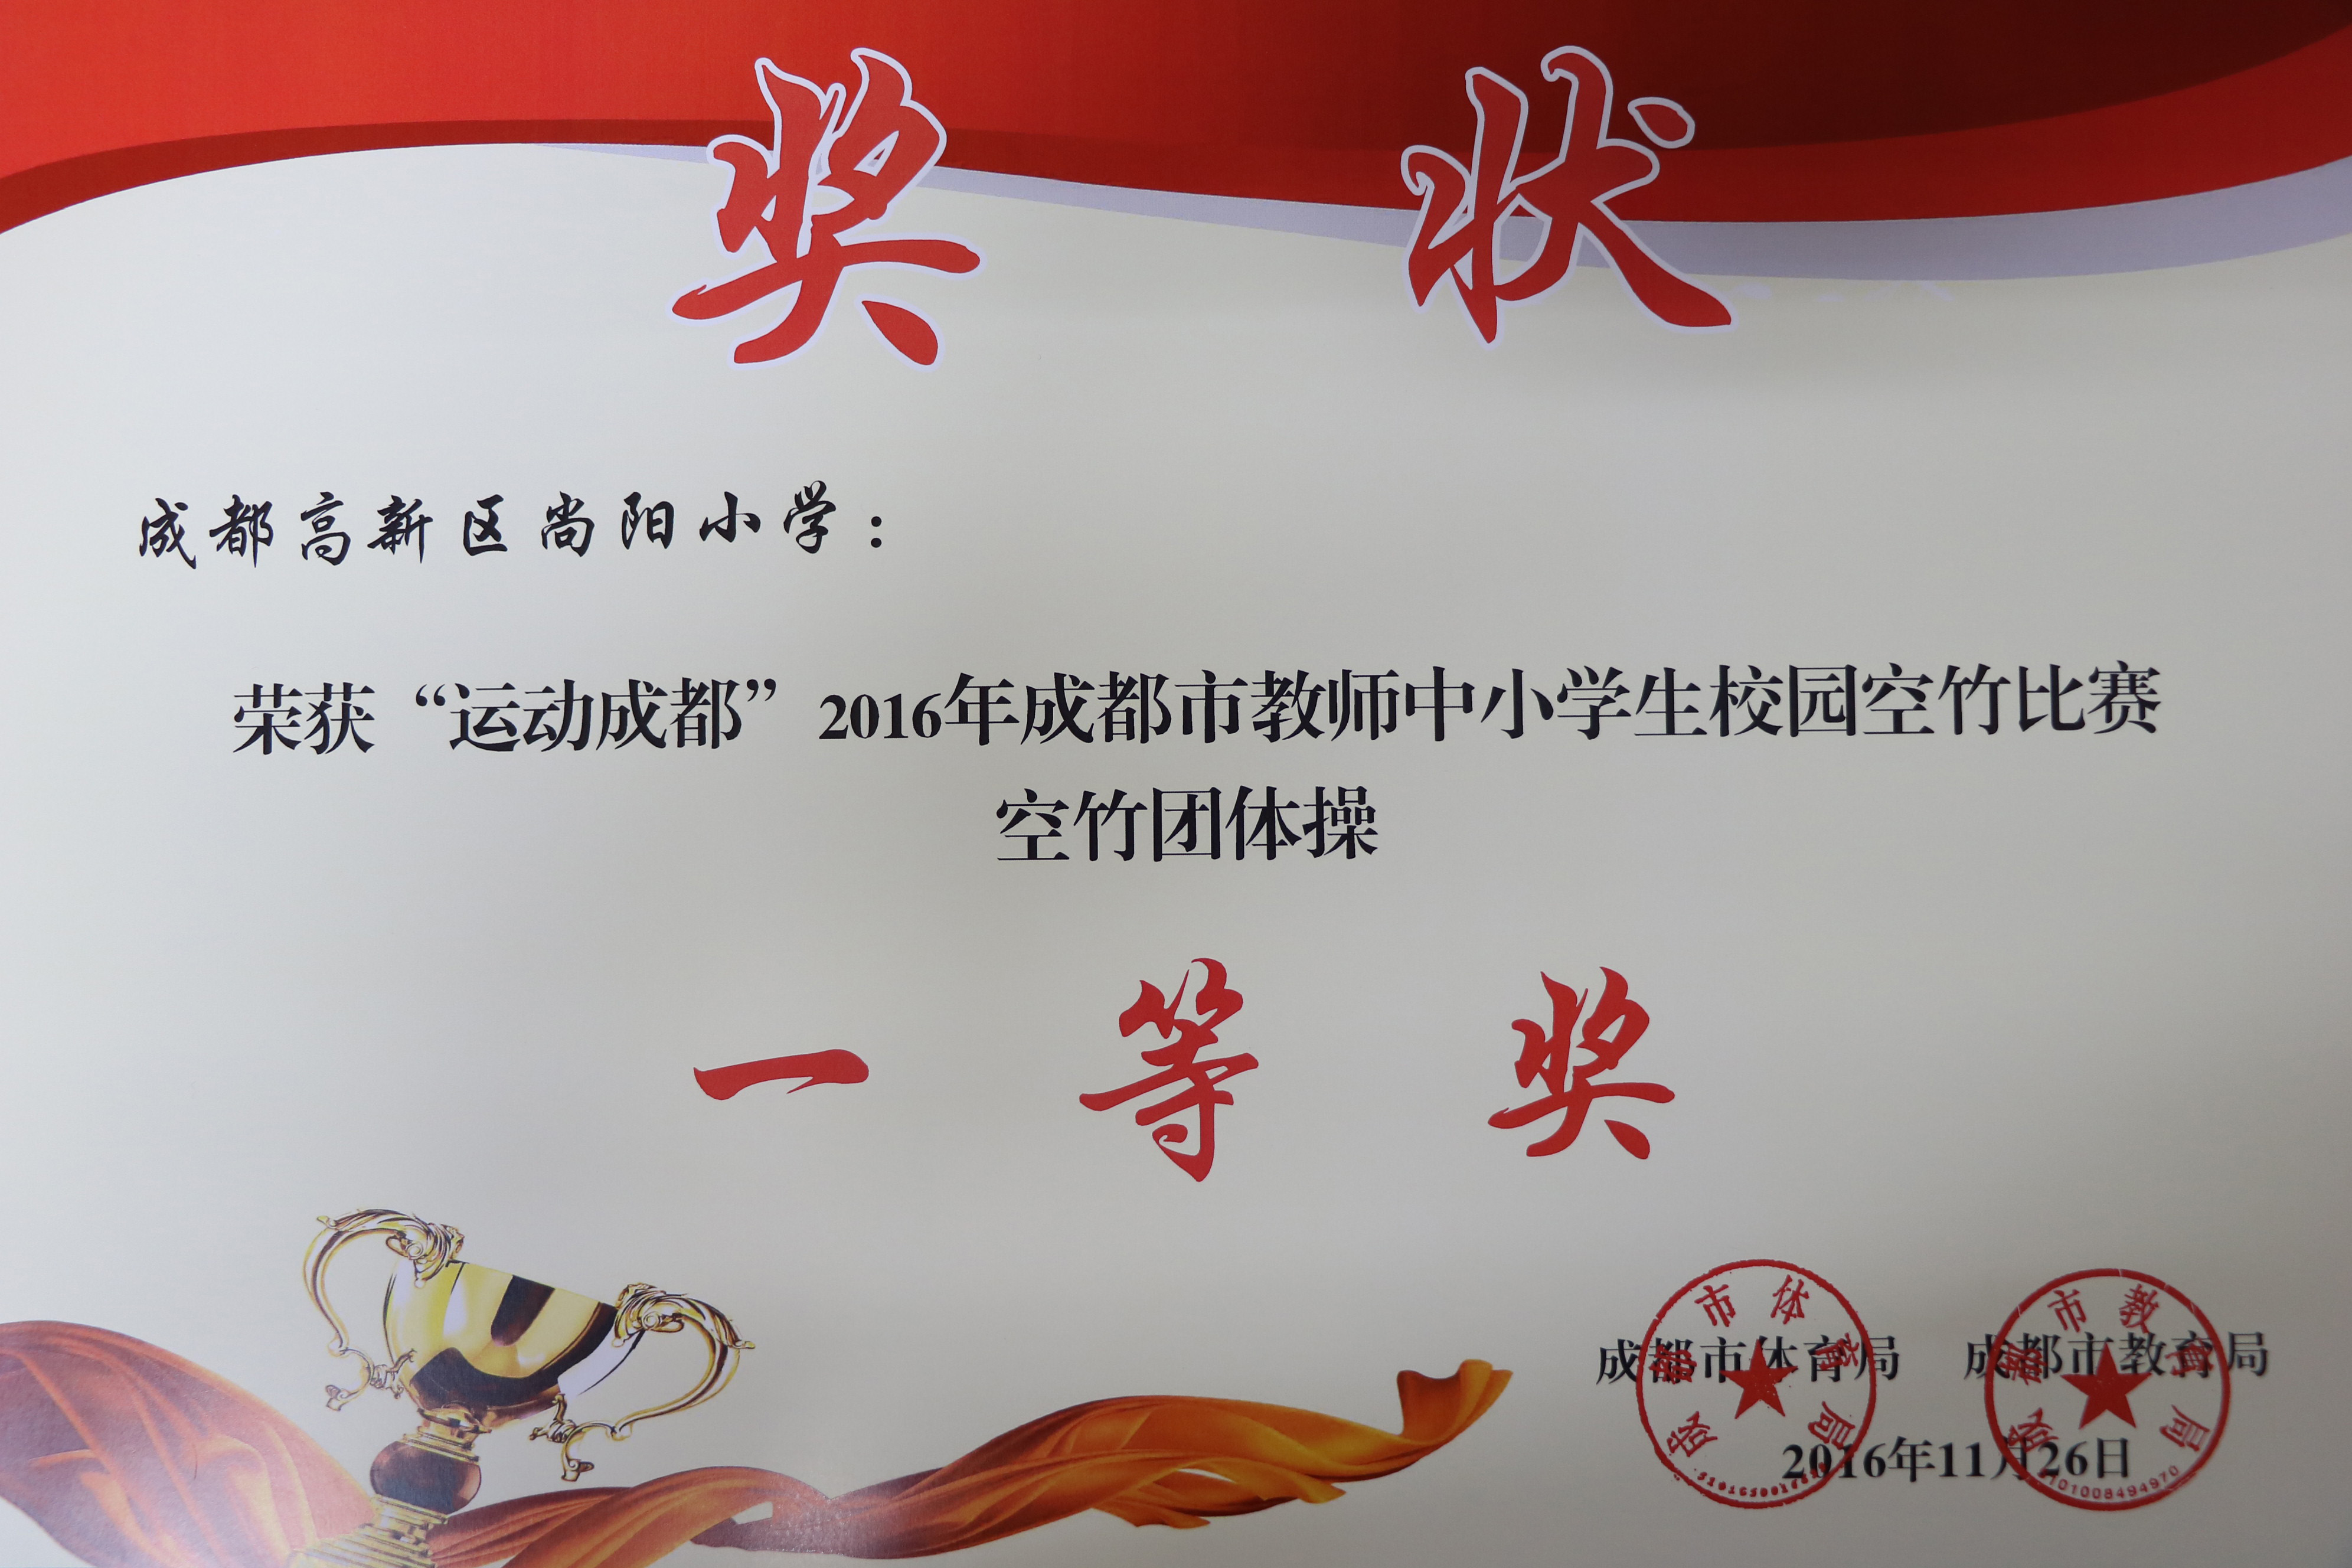 奖状
成都高新区尚阳小学：
荣获“运动成都”2016年成都市教师中小学生校园空竹比赛
空竹团体操
一等奖
成都市体育局 成都市教育局
2016年11月26日
成都市体育局
成都市教育局
5101008494970